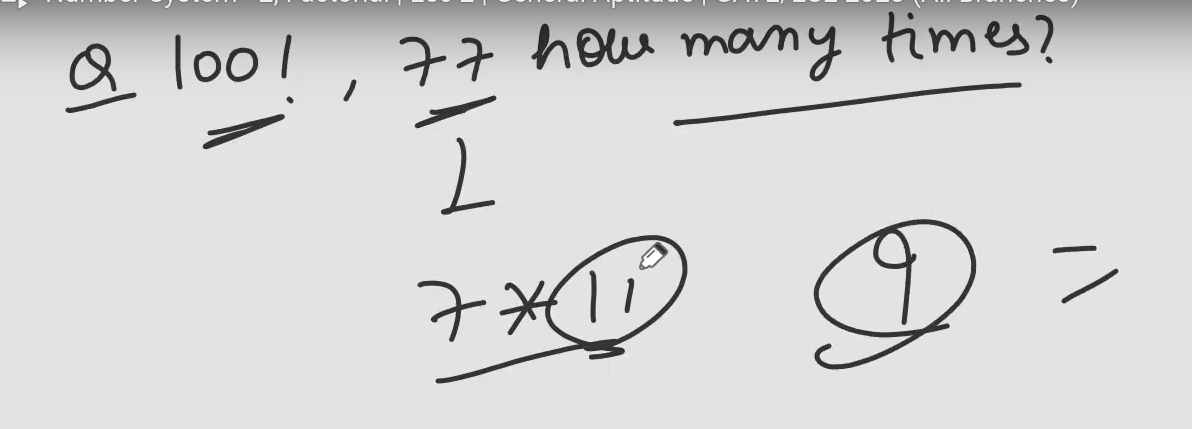 Number System - 2, Factorial | Lec 2 | General Aptitude | GATE/ESE 2025 (All Branches)
Q 100! , 77 how many times?
7 * 11 9 =